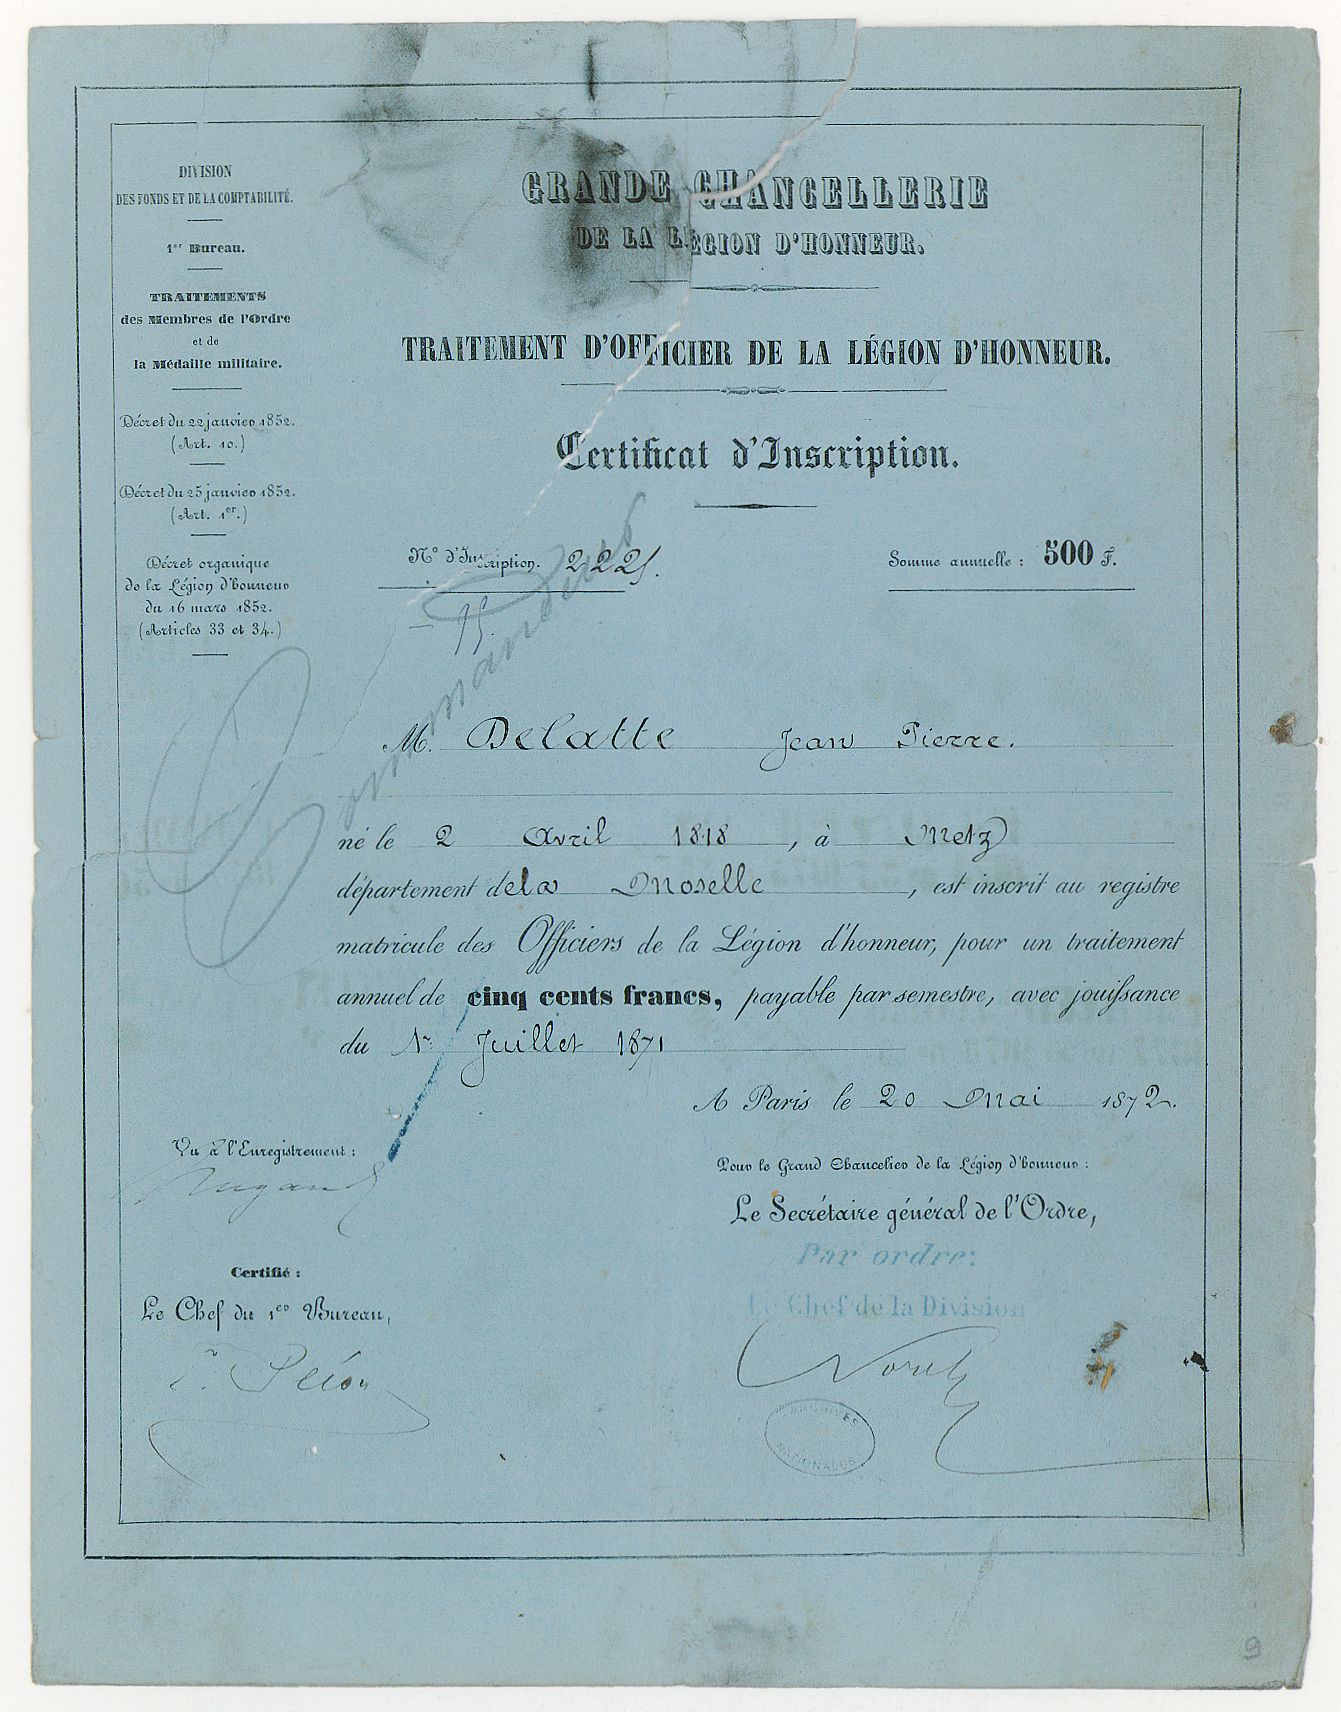 DIVISION
DES FONDS ET DE LA COMPTABILITÉ.
1er Bureau.
TRAITEMENTS
des Membres de l'Ordre
et de
la Médaille militaire.
Décret du 22 janvier 1852.
(Art. 10.)
Décret du 25 janvier 1852.
(Art. 1er.)
Décret organique
de la Légion d'honneur
du 16 mars 1852.
(Articles 33 et 34.)
GRANDE CHANCELLERIE
DE LA LÉGION D'HONNEUR.
TRAITEMENT D'OFFICIER DE LA LÉGION D'HONNEUR.
Certificat d'Inscription.
N° d'Inscription. 2225.
Somme annuelle : 500 F.
M. Delatte Jean Pierre.
né le 2 Avril 1818, à Metz
département de la Moselle, est inscrit au registre
matricule des Officiers de la Légion d'honneur, pour un traitement
annuel de cinq cents francs, payable par semestre, avec jouissance
du 1er Juillet 1871
A Paris le 20 Mai 1872.
Vu à l'Enregistrement :
Pour le Grand Chancelier de la Légion d'honneur :
Le Secrétaire général de l'Ordre,
Par ordre:
Le Chef de la Division
Certifié :
Le Chef du 1er Bureau,
ARCHIVES
NATIONALES
9